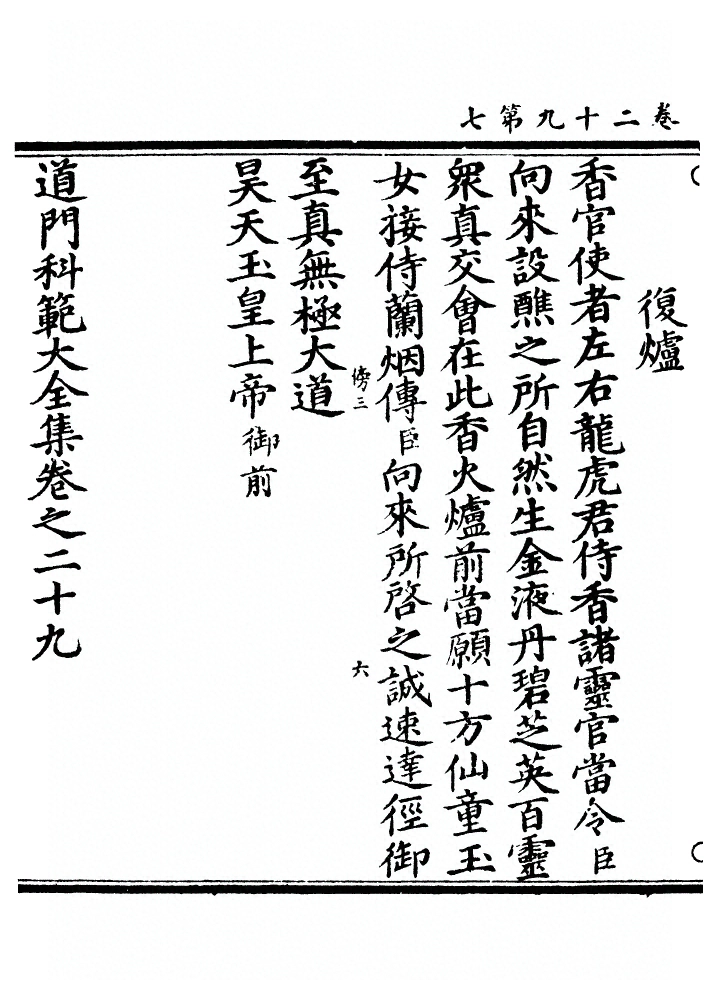 卷二十九第七
復爐
香官使者左右龍虎君侍香諸靈官當令臣
向來設醮之所自然生金液丹碧芝英百靈
衆真交會在此香火爐前當願十方仙童玉
女接侍蘭烟傳臣向來所啓之誠速達徑御
傍三
六
至真無極大道
昊天玉皇上帝御前
道門科範大全集卷之二十九